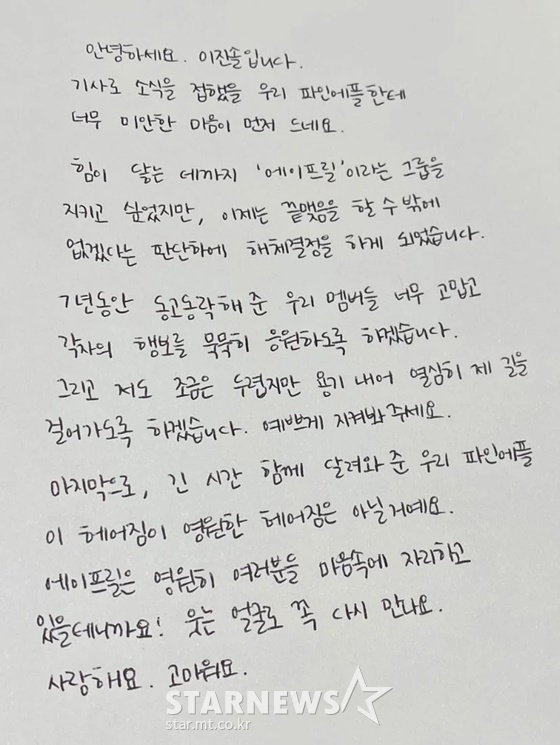 안녕하세요. 이진솔입니다.
기사로 소식을 접했을 우리 파인에플한테
너무 미안한 마음이 먼저 드네요.
힘이 닿는 데까지 '에이프릴'이라는 그룹을
지키고 싶었지만, 이제는 끝맺음을 할 수 밖에
없겠다는 판단하에 해체결정을 하게 되었습니다.
7년동안 동고동락해 준 우리 멤버들 너무 고맙고
각자의 행보를 묵묵히 응원하도록 하겠습니다.
그리고 저도 조금은 두렵지만 용기 내어 열심히 제 길을
걸어가도록 하겠습니다. 예쁘게 지켜봐주세요.
마지막으로, 긴 시간 함께 달려와 준 우리 파인에플
이 헤어짐이 영원한 헤어짐은 아닐거예요.
에이프릴은 영원히 여러분들 마음속에 자리하고
있을테니까요! 웃는 얼굴로 꼭 다시 만나요.
사랑해요. 고마워요.
STARNEWS
star.mt.co.kr